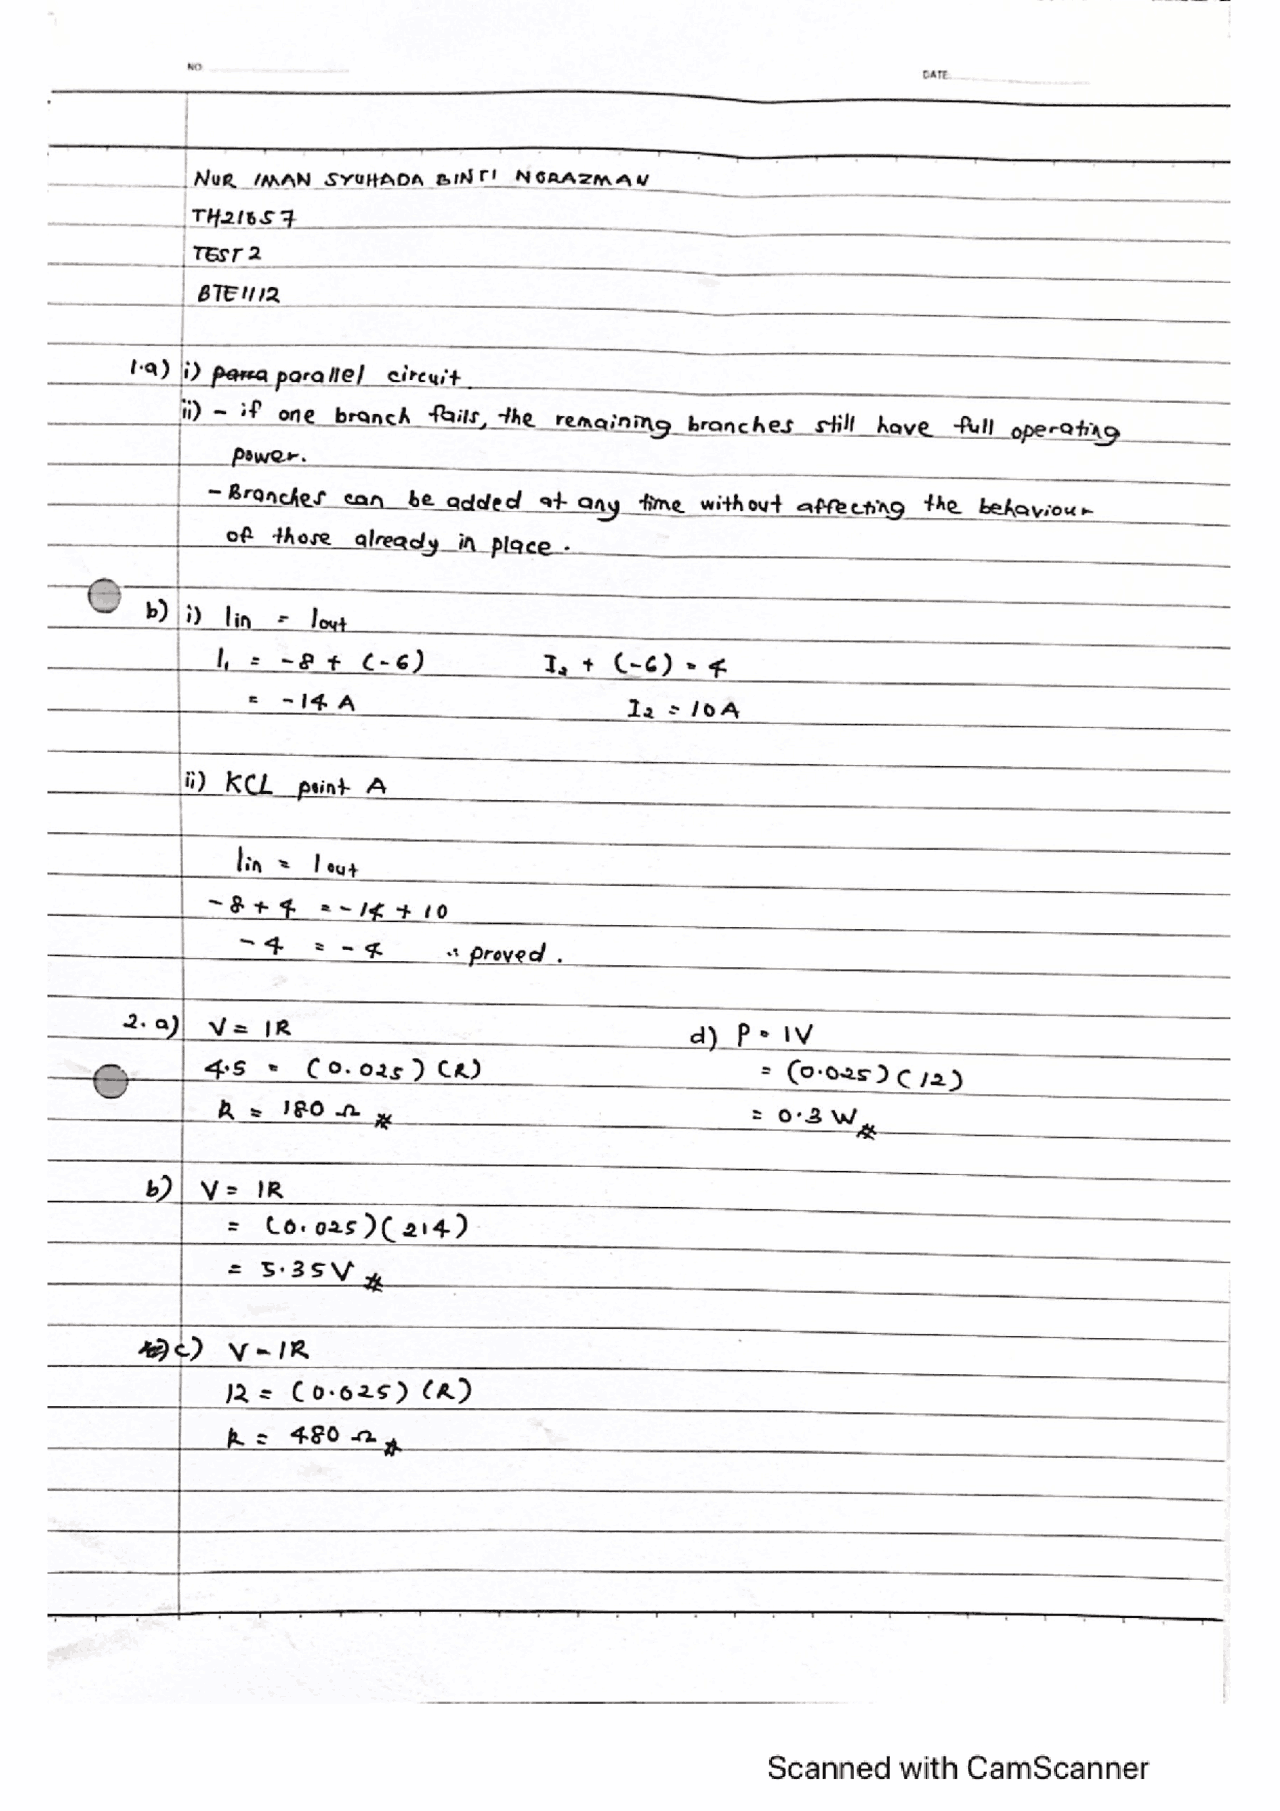 NO.
DATE
NUR IMAN SYUHADA BINTI NORAZMAN
TH21857
TEST 2
BTE1112
1.a) i) para parallel circuit.
ii) - if one branch fails, the remaining branches still have full operating
power.
- Branches can be added at any time without affecting the behaviour
of those already in place.
b) i) Iin = Iout
I₁ = -8 + (-6)    I₂ + (-6) = 4
= -14 A    I₂ = 10A
ii) KCL point A
Iin = Iout
-8 + 4 = -14 + 10
-4 = -4 ∴ proved.
2. a) V = IR    d) P = IV
4.5 = (0.025)(R)    = (0.025)(12)
R = 180 Ω #    = 0.3 W #
b) V = IR
= (0.025)(214)
= 5.35V #
c) V = IR
12 = (0.025)(R)
R = 480 Ω #
Scanned with CamScanner